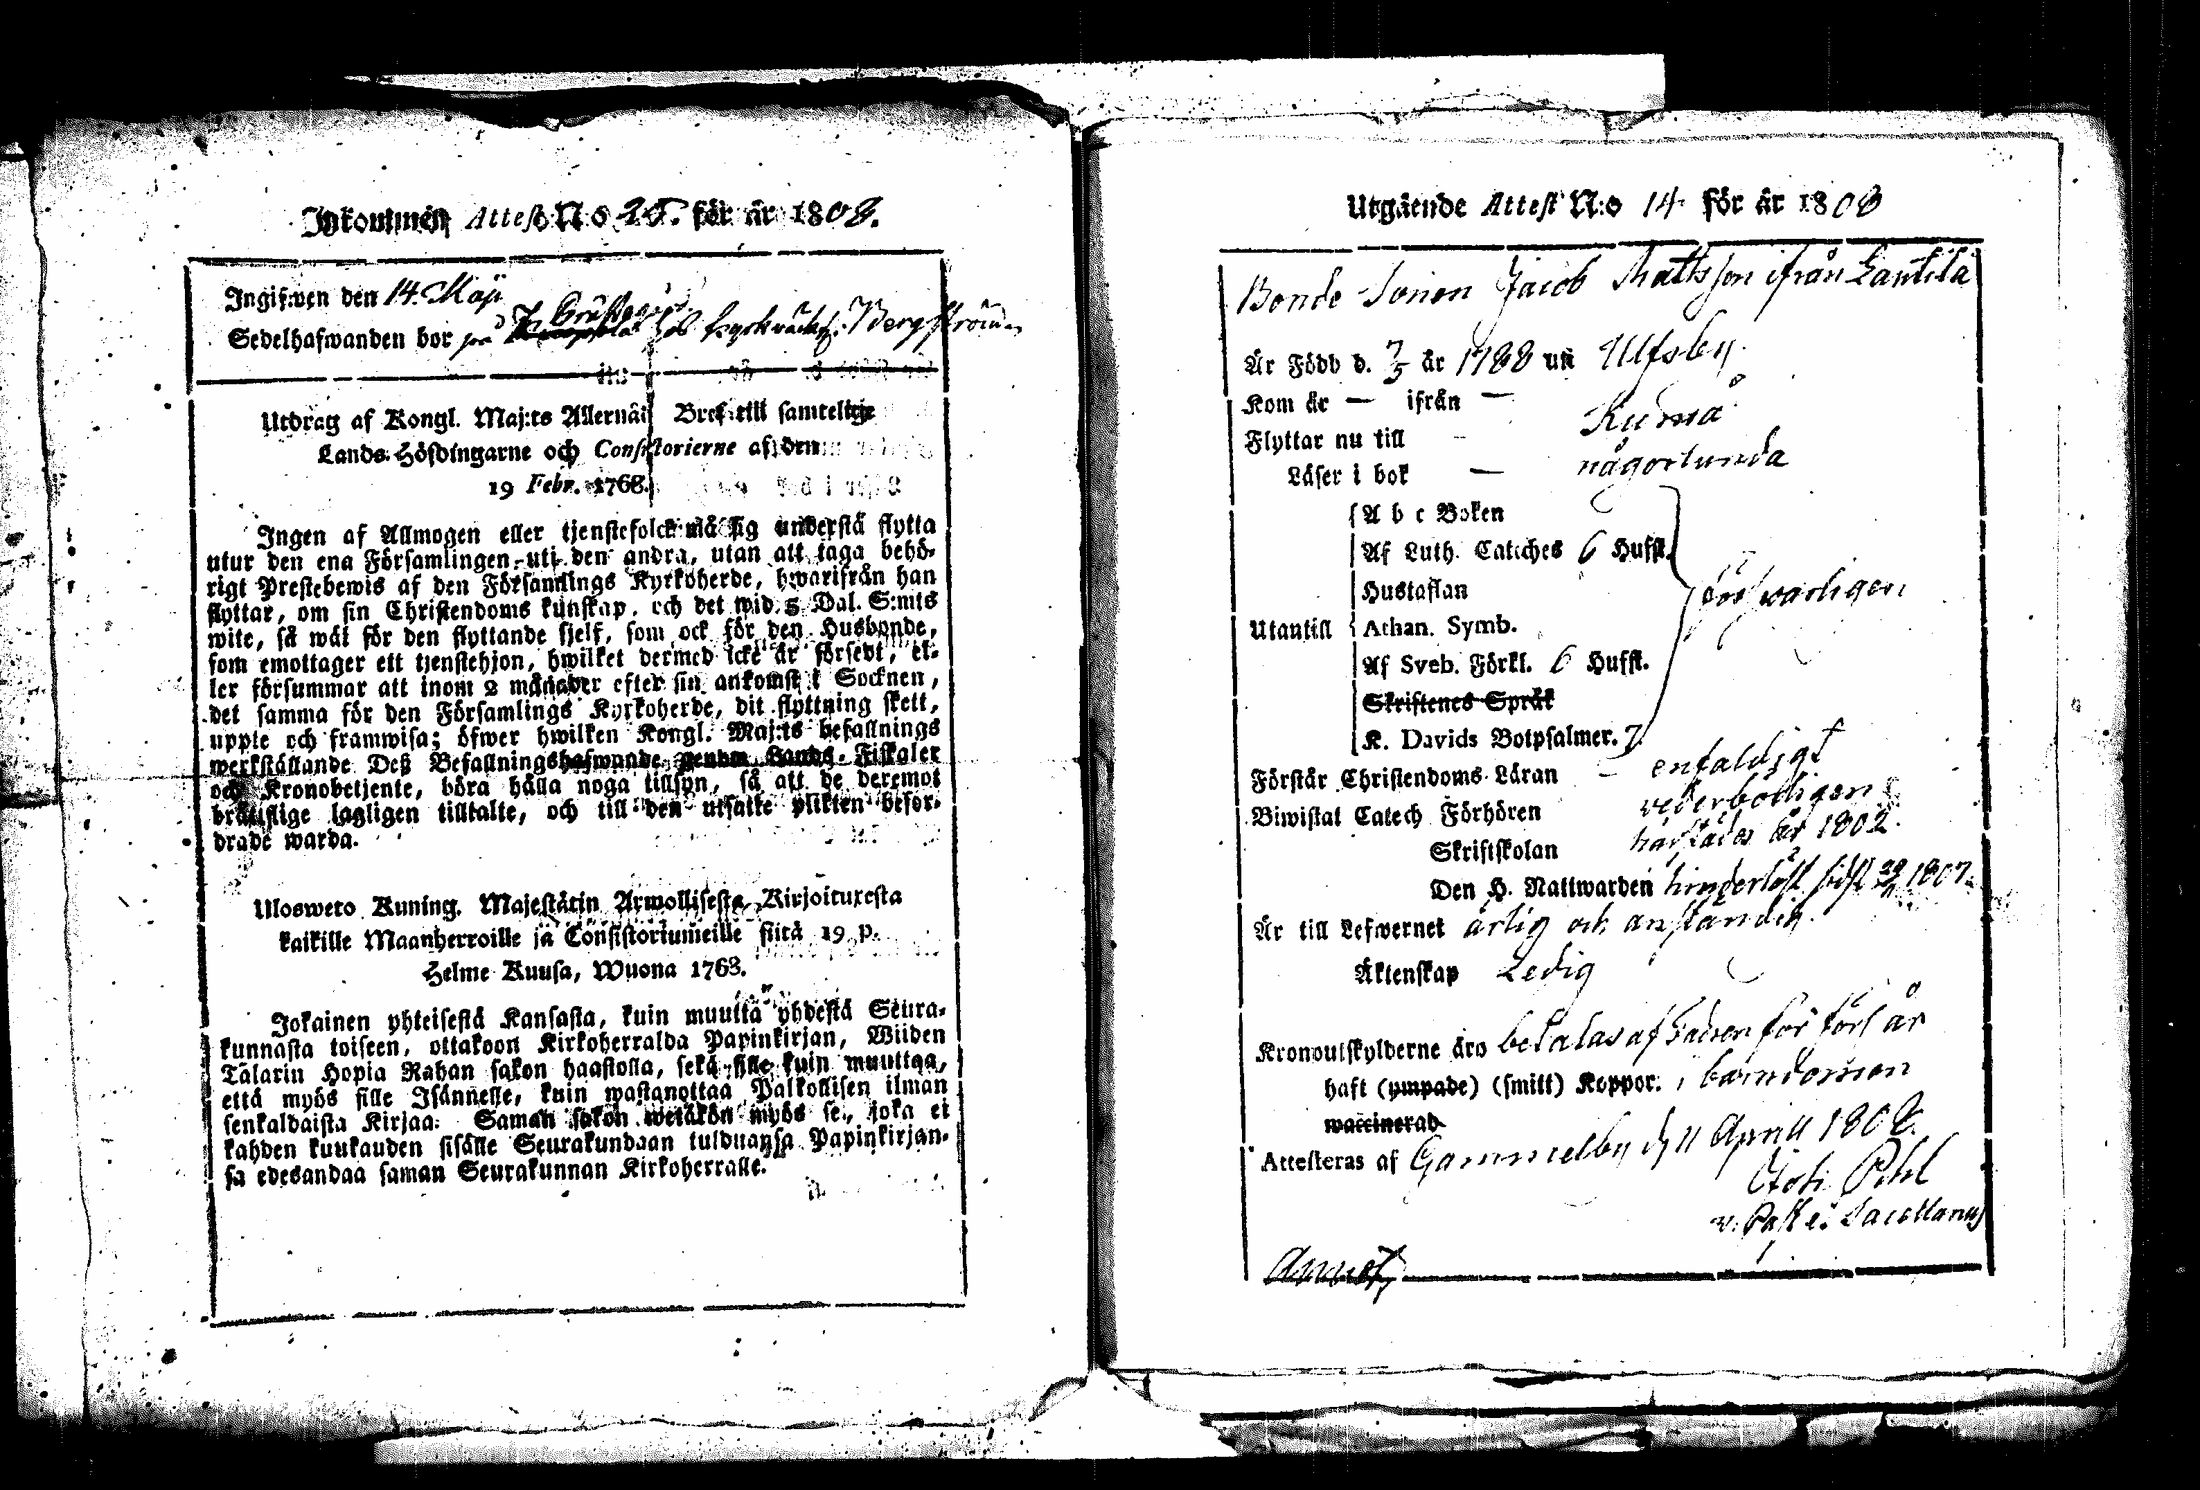 Inkommen Attest N:o 25. för år 1808.
Ingifwen den 14. Maji
Sedelhafwanden bor på hos kyrkväckt. Bergström
Utdrag af Kongl. Maj:ts Allernåd Bref till samtelige
Lands-Höfdingarne och Consistorierne af den
19 Febr. 1768.
Ingen af Allmogen eller tjenstefolck må sig understå flytta
utur den ena Församlingen uti den andra, utan att taga behö-
rigt Prestebewis af den Församlings Kyrkoherde, hwarifrån han
flyttar, om sin Christendoms kunskap, och det wid 5 Dal. S:mts
wite, så wäl för den flyttande sjelf, som ock för den Husbonde,
som emottager ett tjenstehjon, hwilket dermed icke är försedt, el-
ler försummar att inom 2 månader efter sin ankomst i Socknen,
det samma för den Församlings Kyrkoherde, dit flyttning skett,
uppte och framwisa; öfwer hwilken Kongl. Maj:ts befallnings
werkställande Deß Befallningshafwande genom Lands-Fiskaler
och Kronobetjente, böra hålla noga tillsyn, så att de deremot
brottslige lagligen tilltalte, och till den utsatte plikten befor-
drade warda.
Ulosweto Kuning. Majestätin Armollisesta Kirjoituxesta
kaikille Maanherroille ja Consistoriumeille siitä 19 p.
Helme Kuusa, Wuona 1768.
Jokainen yhteisestä Kansasta, kuin muutta yhdestä Seura-
kunnasta toiseen, ottakoon Kirkoherralda Papinkirjan, Wiiden
Talarin Hopia Rahan sakon haastolla, sekä sille kuin muuttaa,
että myös sille Isännelle, kuin wastanottaa Palkollisen ilman
senkaldaista Kirjaa: Saman sakon wetäkön myös se, joka ei
kahden kuukauden sisälle Seurakundaan tulduansa Papinkirjan-
sa edesandaa saman Seurakunnan Kirkoherralle.
Utgående Attest N:o 14. för år 1808
Bonde Sonen Jacob Mattsson ifrån Lautila
Är Född d. 7/5 år 1788 uti Ulfsby.
Kom år — ifrån —
Flyttar nu till Kumå
Läser i bok — någorlunda
A b c Boken
Af Luth. Cateches 6 Hufst.
Hustaflan förswarligen
Utantill Athan. Symb.
Af Sveb. Förkl. 6 Hufst.
Skriftenes Språk
K. Davids Botpsalmer. 7.
Förstår Christendoms-Läran – enfaldigt
Biwistat Catech Förhören vederbörligen
Skriftskolan härstädes år 1802.
Den H. Nattwarden hinderlöst sidst 1807.
Är till Lefwernet ärlig och anständig.
Äktenskap Ledig
Kronoutskylderne äro betalas af Fadren för förl. år
haft (ympade) (smitt) Koppor. i barndomen
waccinerad
Attesteras af Gammelby d. 11 Aprill 1808.
Pihl
v. Past. e. Sacellanus